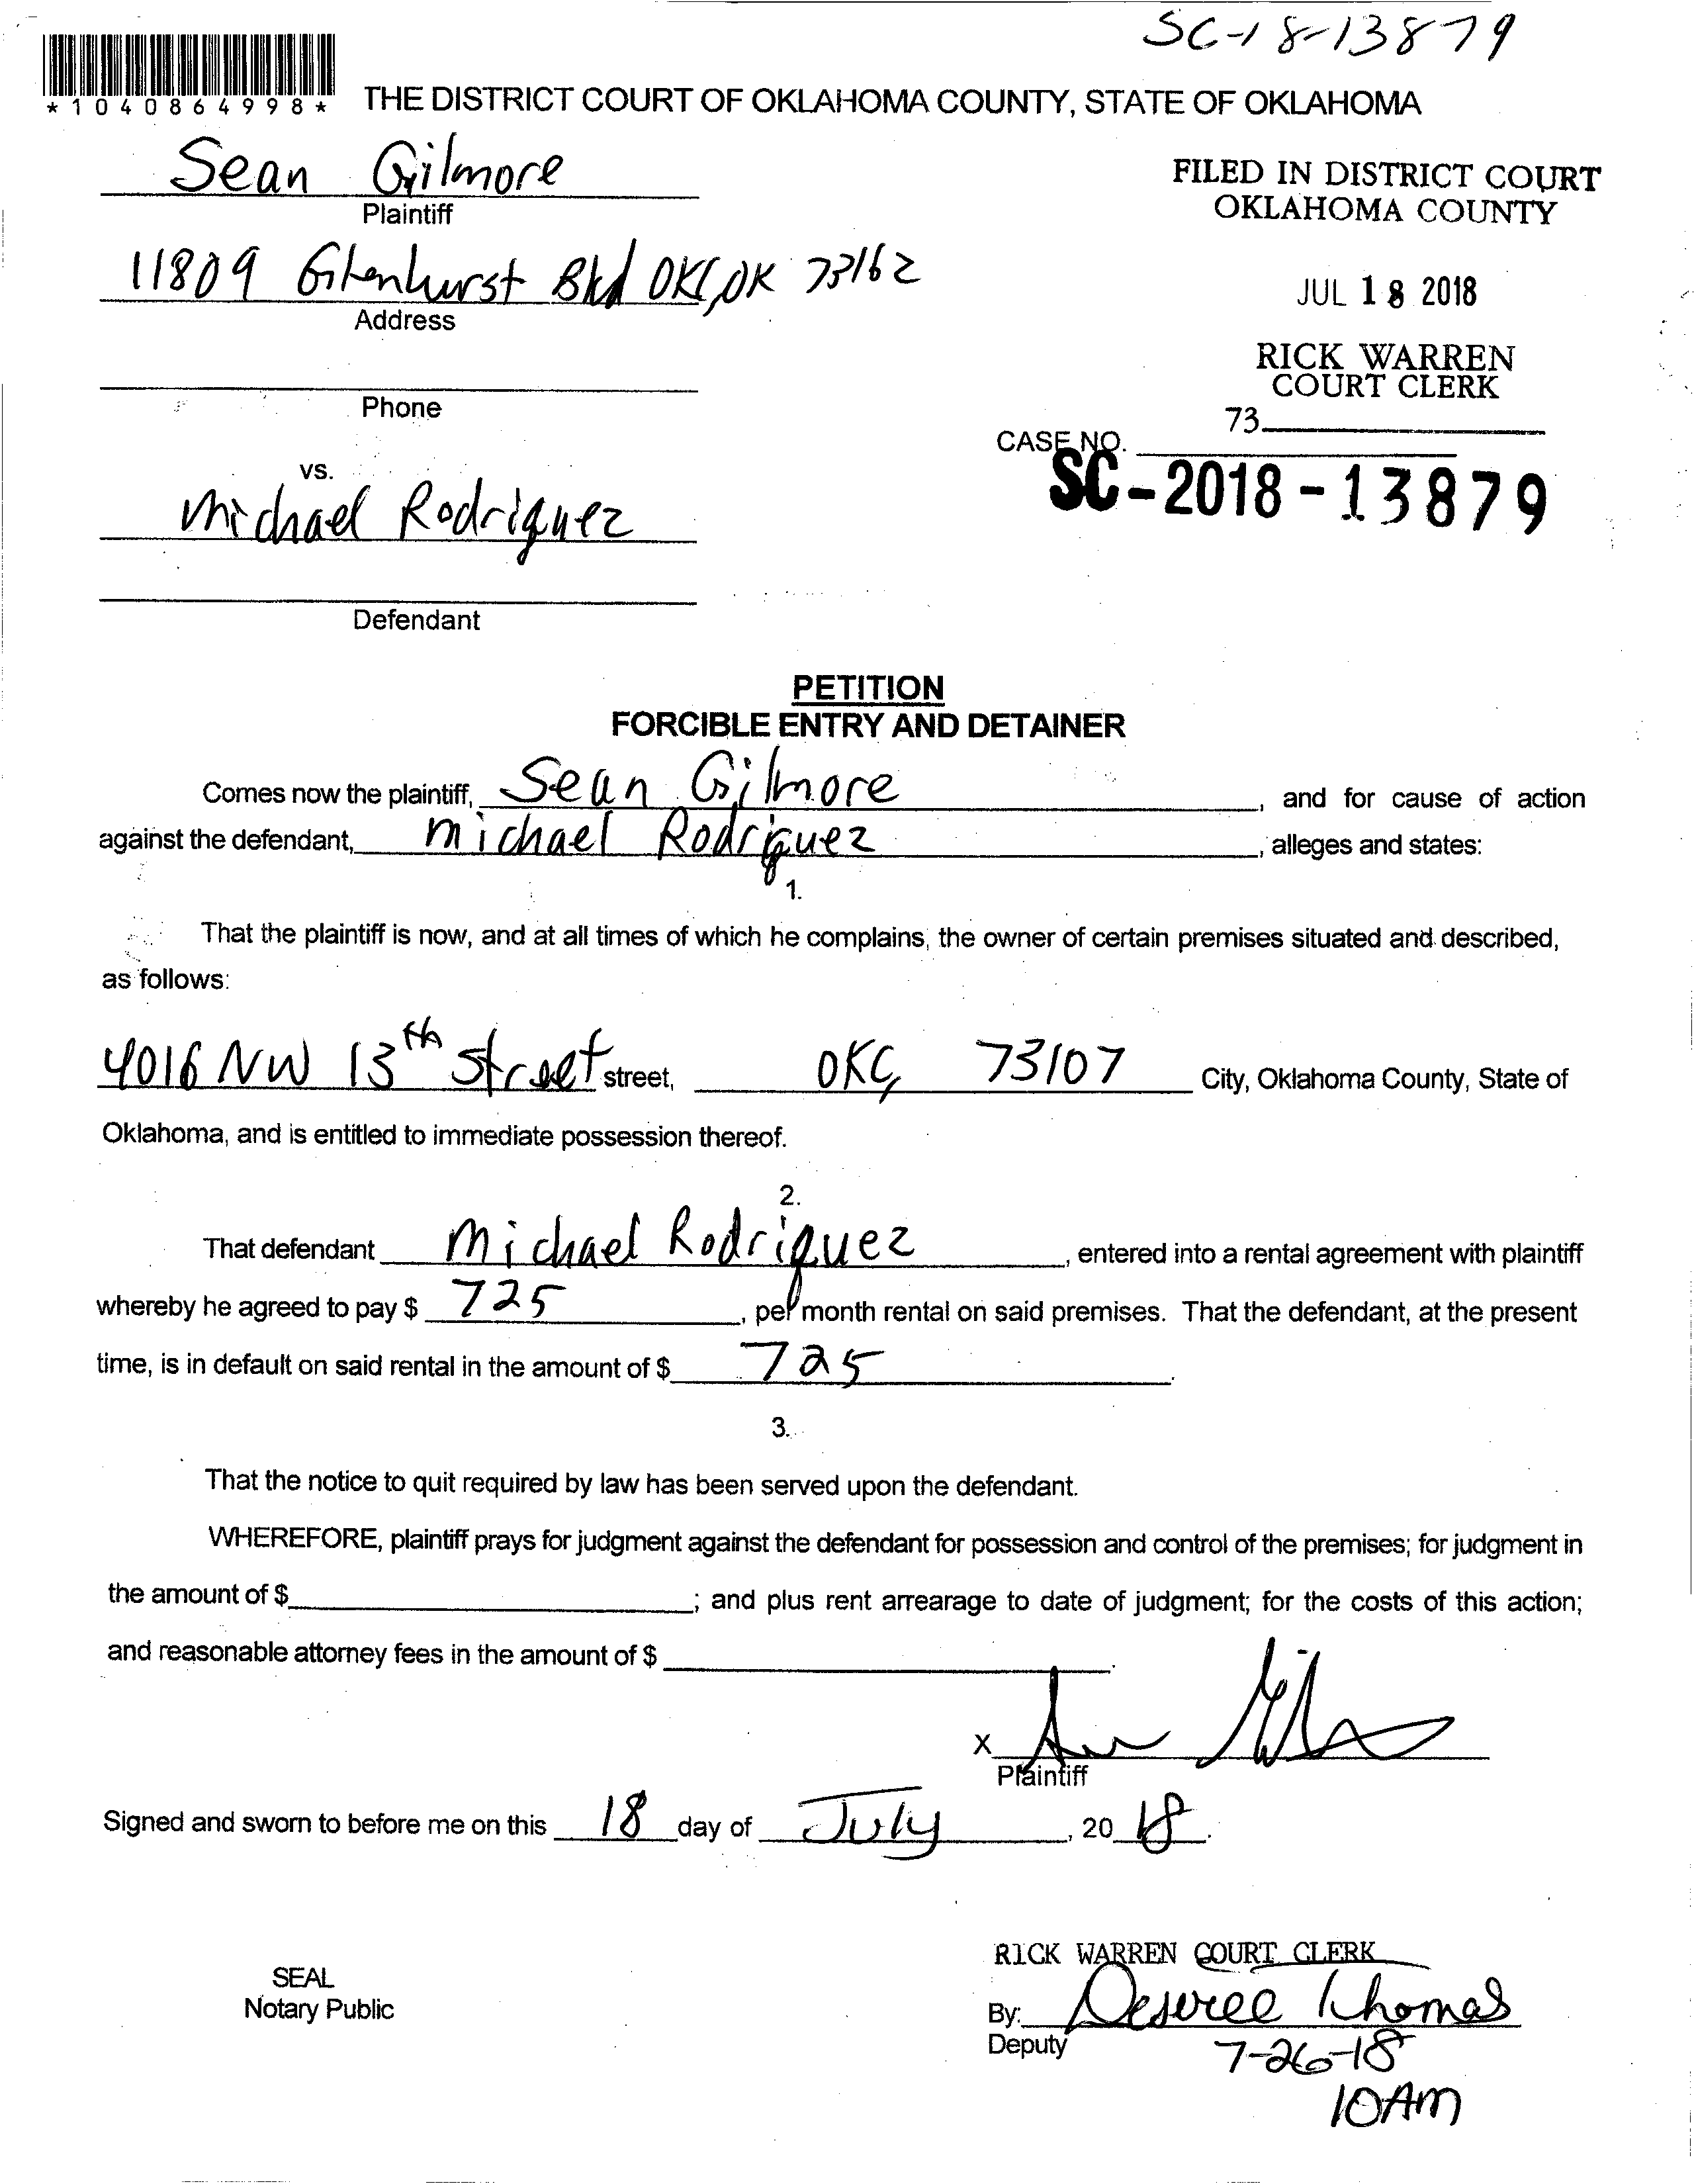 SC-18-13879
*1040864998*
THE DISTRICT COURT OF OKLAHOMA COUNTY, STATE OF OKLAHOMA
Sean Gilmore
Plaintiff
FILED IN DISTRICT COURT
OKLAHOMA COUNTY
11809 Blvd OKC, OK 73162
Address
JUL 18 2018
RICK WARREN
COURT CLERK
Phone
73
CASE NO.
SC-2018-13879
vs.
Michael Rodriguez
Defendant
PETITION
FORCIBLE ENTRY AND DETAINER
Comes now the plaintiff, Sean Gilmore, and for cause of action
against the defendant, Michael Rodriguez, alleges and states:
1.
That the plaintiff is now, and at all times of which he complains, the owner of certain premises situated and described,
as follows:
4016 NW 13th Street street, OKC, 73107 City, Oklahoma County, State of
Oklahoma, and is entitled to immediate possession thereof.
2.
That defendant Michael Rodriguez, entered into a rental agreement with plaintiff
whereby he agreed to pay $ 725, per month rental on said premises. That the defendant, at the present
time, is in default on said rental in the amount of $ 725.
3.
That the notice to quit required by law has been served upon the defendant.
WHEREFORE, plaintiff prays for judgment against the defendant for possession and control of the premises; for judgment in
the amount of $ ; and plus rent arrearage to date of judgment; for the costs of this action;
and reasonable attorney fees in the amount of $ .
X
Plaintiff
Signed and sworn to before me on this 18 day of July, 2018.
RICK WARREN COURT CLERK
SEAL
Notary Public
By: Desiree Thomas
Deputy
7-26-18
10AM